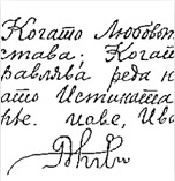 Когато Любовт
става: Когат
равлява реда н
ато Истината
рве.